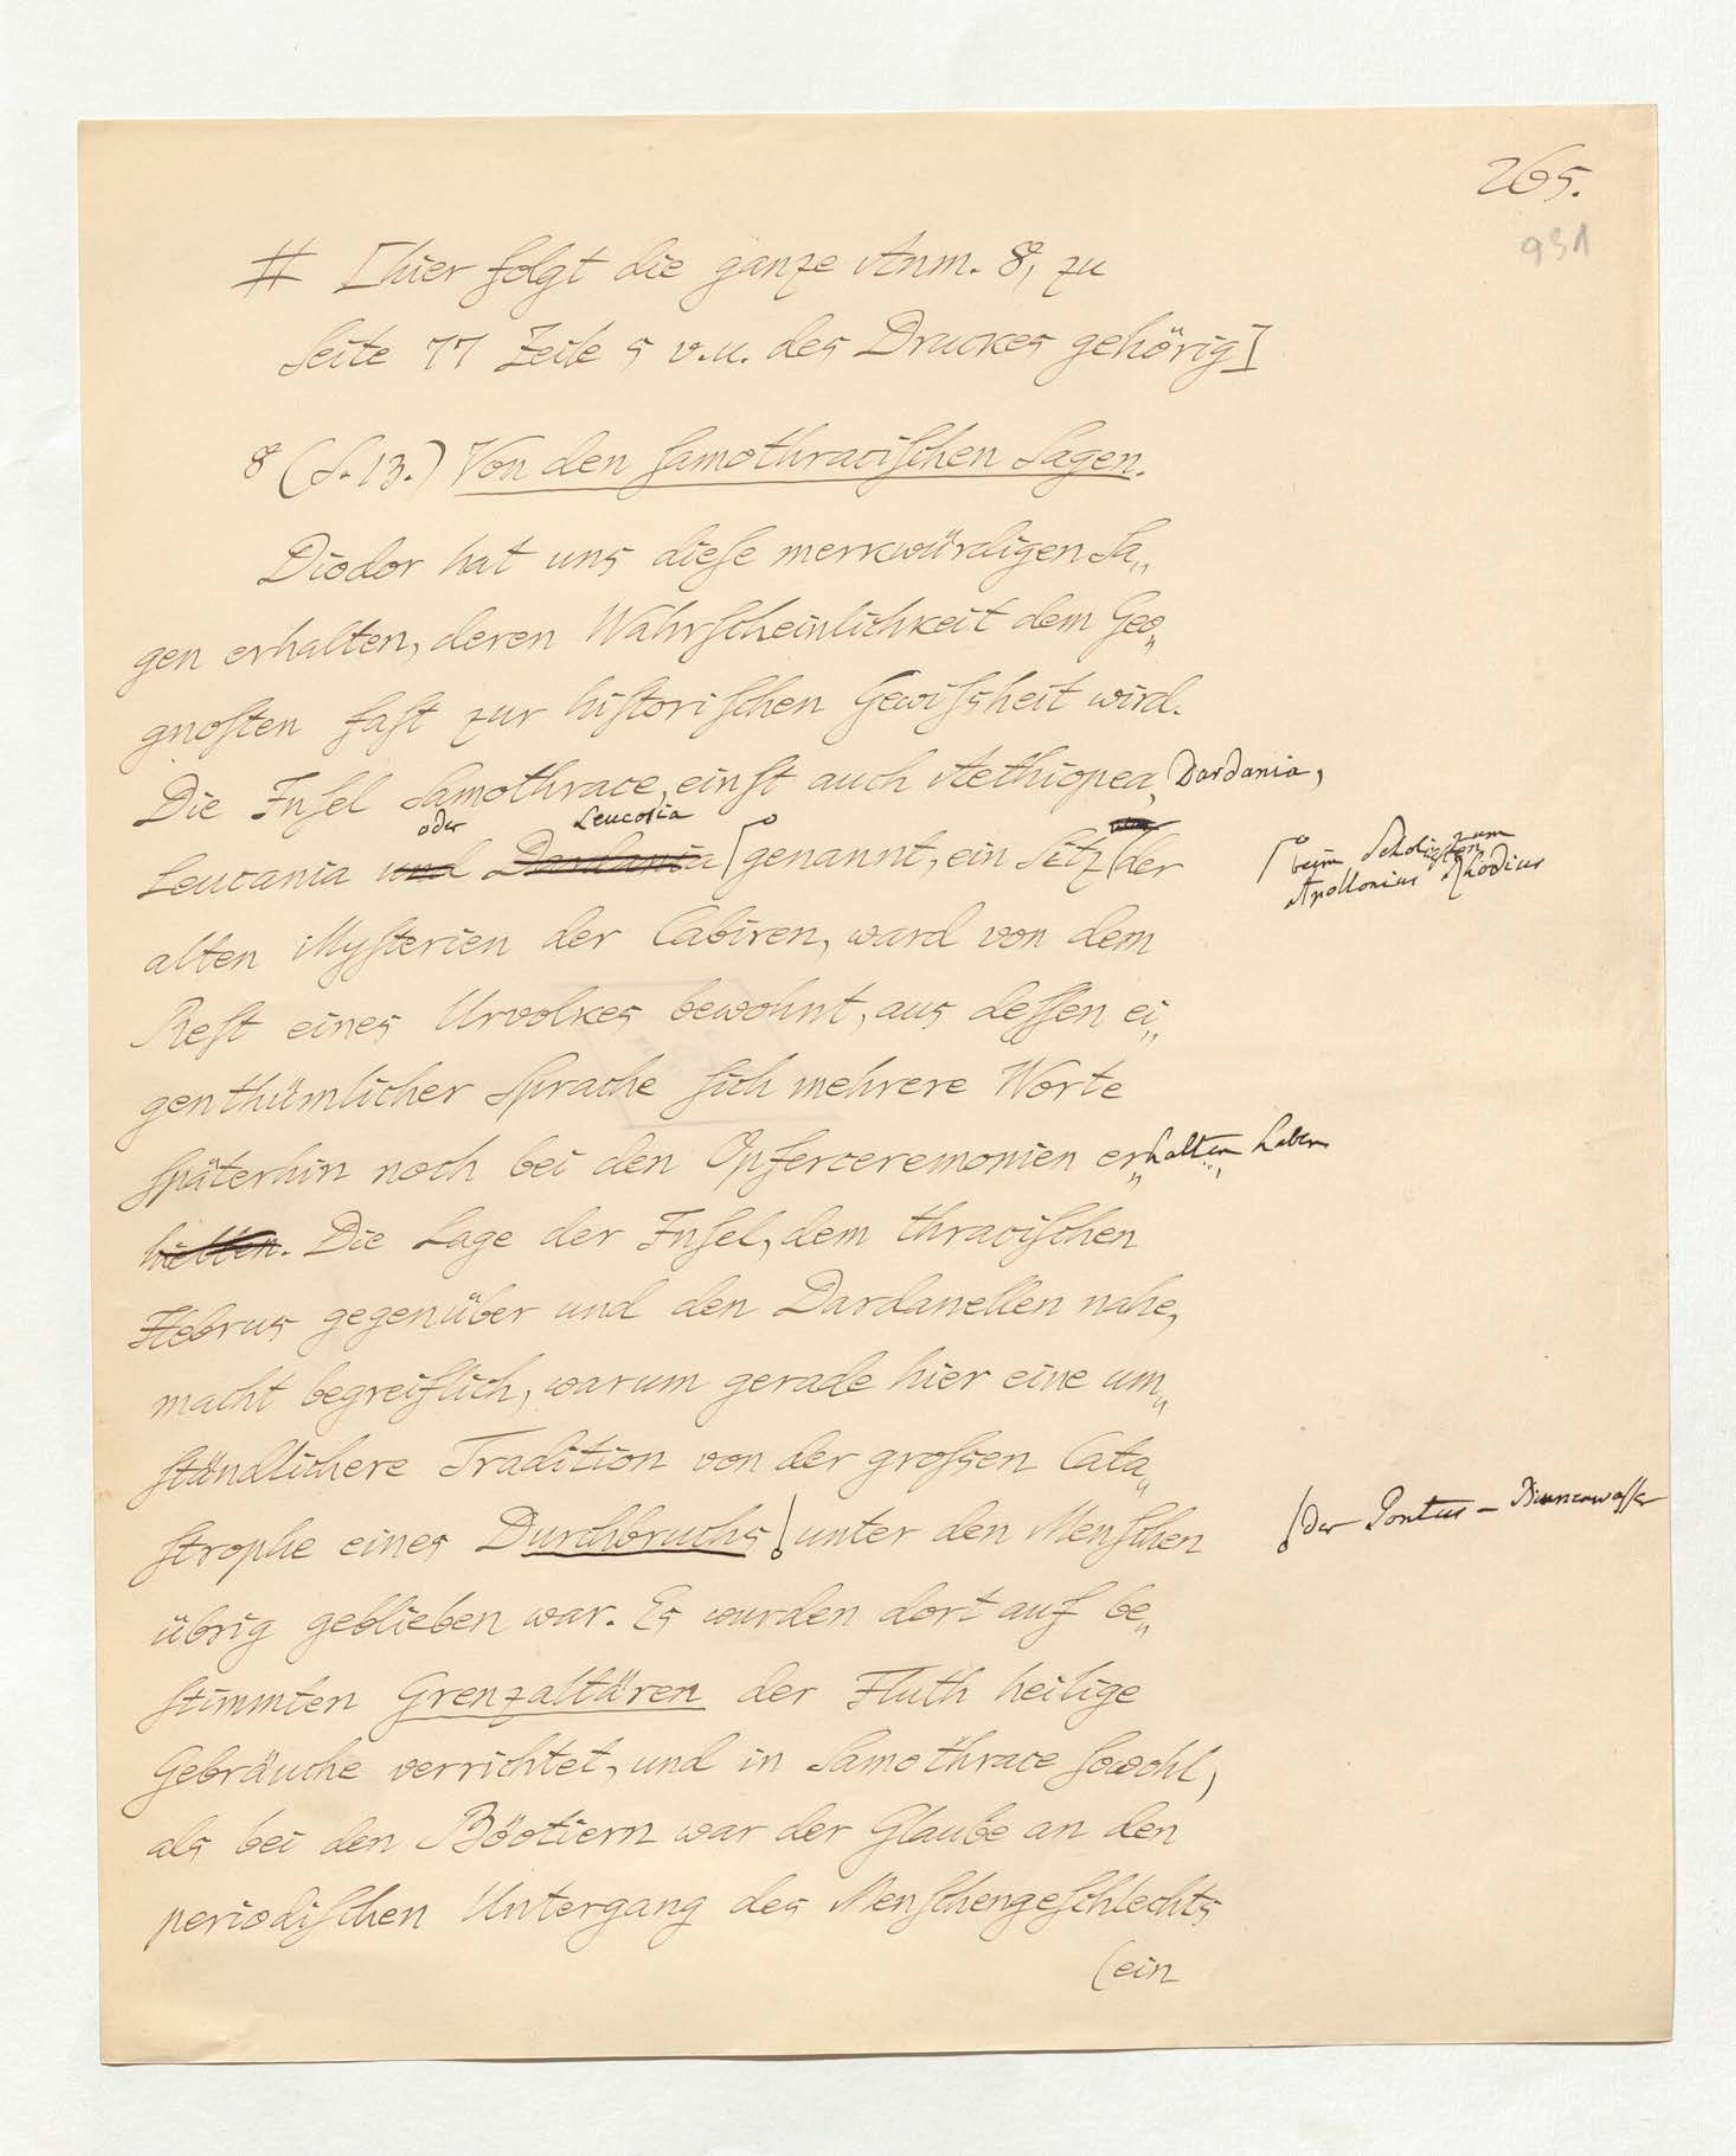 265.
951
# [hier folgt die ganze Anm. 8, zu
Seite 77 Zeile 5 v.u. des Druckes gehörig]
8 (S. 13.) Von den samothracischen Sagen.
Diodor hat uns diese merkwürdigen Sa„
gen erhalten, deren Wahrscheinlichkeit dem Geo„
gnosten fast zur historischen Gewissheit wird.
Die Insel Samothrace, einst auch Aethiopea, Dardania,
oder Leucosia
Leucania und Dardania genannt, ein Sitz der
beim Scholiasten zum
Apollonius Rhodius
alten Mysterien der Cabiren, ward von dem
Rest eines Urvolkes bewohnt, aus dessen ei„
genthümlicher Sprache sich mehrere Worte
späterhin noch bei den Opferceremonien er„halten haben
hielten. Die Lage der Insel, dem thracischen
Hebrus gegenüber und den Dardanellen nahe,
macht begreiflich, warum gerade hier eine um„
ständlichere Tradition von der grossen Cata„
strophe eines Durchbruchs unter den Menschen
der Pontus-Binnenwasser
übrig geblieben war. Es wurden dort auf be„
stimmten Grenzaltären der Fluth heilige
Gebräuche verrichtet, und in Samothrace sowohl,
als bei den Böotiern war der Glaube an den
periodischen Untergang des Menschengeschlechts
(ein